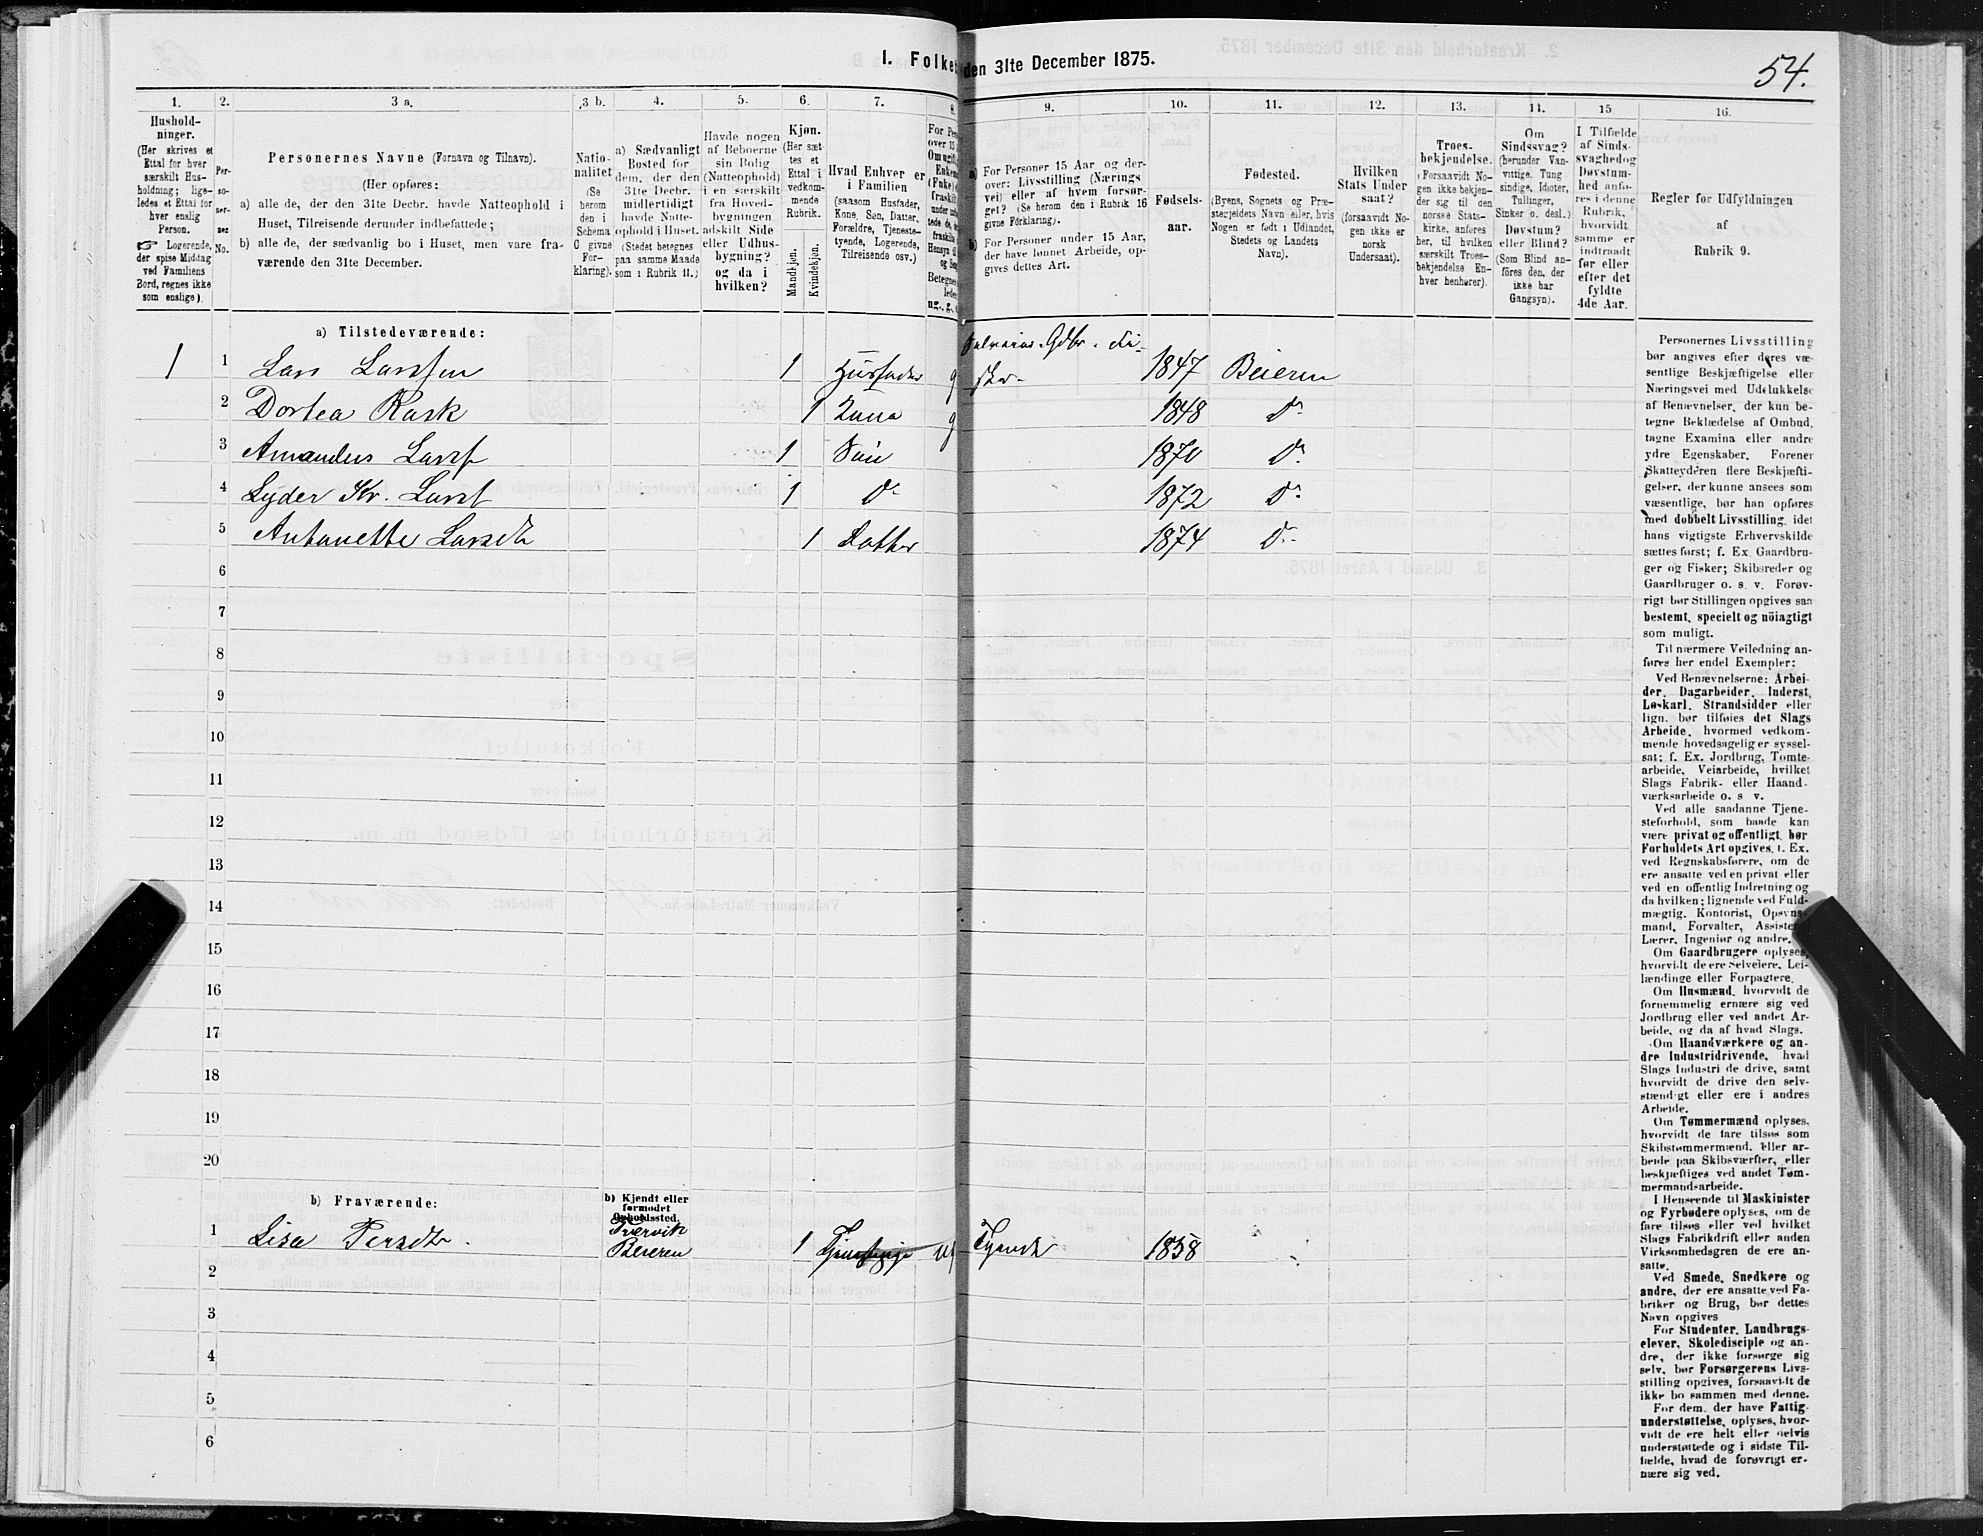 54.
1. Folket den 31te December 1875.
1.
2.
3 a.
3 b.
4.
5.
6.
7.
8.
9.
10.
11.
12.
13.
14.
15
16.
Hushold-
ninger.
(Her skrives et
Ettal for hver
særskilt Hus-
holdning; lige-
ledes et Ettal for
hver enslig
Person.
☞ Logerende,
der spise Middag
ved Familiens
Bord, regnes ikke
som enslige).
Per-
so-
ner-
nes
No.
Personernes Navne (Fornavn og Tilnavn).
(Her opføres:
a) alle de, der den 31te Decbr. havde Natteophold i
Huset, Tilreisende derunder indbefattede;
b) alle de, der sædvanlig bo i Huset, men vare fra-
værende den 31te December.
Natio-
nalitet
(Se
herom
den i
Schema
O givne
For-
klaring).
a) Sædvanligt
Bosted for
dem, der den
31te Decbr.
midlertidigt
havde Natte-
ophold i Huset.
(Stedet betegnes
paa samme Maade
som i Rubrik 11.)
Havde nogen
af Beboerne
sin Bolig
(Natteophold)
i en særskilt
fra Hoved-
bygningen
adskilt Side
eller Udhus-
bygning?
og da i
hvilken?
Kjøn.
(Her sæt-
tes et
Ettal i
vedkom-
mende
Rubrik.
Mandkjøn.
Kvindekjøn.
Hvad Enhver er
i Familien
(saasom Husfader,
Kone, Søn, Datter,
Forældre, Tjeneste-
tyende, Logerende,
Tilreisende osv.)
For Pers
over 15
Om ugift,
Enkem
(Fuke) e
fraskilt
Betegnes
ledes
ug., g., e
a) For Personer 15 Aar og der-
over: Livsstilling (Nærings
vei) eller af hvem forsør-
get? (Se herom de i Rubrik 16
givne Forklaring).
b) For Personer under 15 Aar,
der have lønnet Arbeide, op-
gives dettes Art.
Fødsels-
aar.
Fødested.
(Byens, Sognets og Præ-
stegjeldets Navn eller, hvis
Nogen er født i Udlandet,
Stedets og Landets
Navn).
Hvilken
Stats Under
saat?
(forsaavidt No-
gen ikke er
norsk
Undersaat).
Troes-
bekjendelse.
(Forsaavidt No-
gen ikke bekjen-
der sig til den
norske Stats-
kirke, anføres
her, til hvilken
særskilt Troes-
bekjendelse En-
hver henhører).
Om
Sindssvag?
(herunder Van-
vittige, Tung
sindige, Idioter,
Tullinger,
Sinker o. desl.)
Døvstum?
eller Blind?
(Som Blind an-
føres den, der
ikke har
Gangsyn).
I Tilfælde
af Sinds-
svaghed og
Døvstum-
hed anfø-
res i denne
Rubrik,
hvorvidt
samme er
indtraadt
før eller
efter det
fyldte
4de Aar.
Regler før Udfyldningen
af
Rubrik 9.
a) Tilstedeværende:
1 1 Lars Larssen 1 Husfader g Selveier. Gdbr. Fi-
sker 1847 Beieren
2 Dortea Rask 1 Kone g 1848 Do
3 Amandus Larss 1 Søn 1870 Do
4 Lyder Kr. Larss 1 Do 1872 Do
5 Antonette Larsdtr 1 Datter 1874 Do
6
7
8
9
10
11
12
13
14
15
16
17
18
19
20
b) Fraværende:
b) Kjendt eller
formodet
Opholdssted.
1 Lisa Persdtr. Tvervik
Beieren 1 ug Tyende 1858
2
3
4
5
6
Personernes Livsstilling
bør angives efter deres væ-
sentlige Beskjæftigelse eller
Næringsvei med Udelukkelse
af Benævnelser, der kun be-
tegne Beklædelse af Ombud,
tagne Examina eller andre
ydre Egenskaber. Forener
Skatteyderen flere Beskjæfti-
gelser, der kunne ansees som
væsentlige, bør han opføres
med dobbelt Livsstilling, idet
hans vigtigste Erhvervskilde
sættes først; f. Ex. Gaardbru-
ger og Fisker; Skibsreder og
Gaardbruger o. s. v. Forøv-
rigt bør Stillingen opgives saa
bestemt, specielt og nöiagtigt
som muligt.
Til nærmere Veiledning an-
føres her endel Exempler:
Ved Benævnelserne: Arbei-
der, Dagarbeider, Inderst,
Løskarl, Strandsidder eller
lign. bør tilføies det Slags
Arbeide, hvormed vedkom-
mende hovedsagelig er syssel-
sat; f. Ex. Jordbrug, Tomte-
arbeide, Veiarbeide, hvilket
Slags Fabrik- eller Haand-
værksarbeide o. s v.
Ved alle saadanne Tjene-
steforhold, som baade kan
være privat og offentligt, bør
Forholdets Art opgives, f. Ex.
ved Regnskabsførere, om de
ere ansatte ved en privat eller
ved en offentlig Indretning og
da hvilken; lignende ved Fuld-
mægtig, Kontorist, Opsyns-
mand, Forvalter, Assistent,
Lærer, Ingeniør og andre.
Om Gaardbrugere oplyses,
hvorvidt de ere Selveiere, Lei-
lændinge eller Forpagtere.
Om Husmænd, hvorvidt de
fornemmelig ernære sig ved
Jordbrug eller ved andet Ar-
beide, og da af hvad Slags.
Om Haandværkere og an-
dre Industridrivende, hvad
Slags Industri de drive, samt
hvorvidt de drive den selv-
stændigt eller ere i andres
Arbeide.
Om Tømmermænd oplyses,
hvorvidt de fare tilsøs som
Skibstømmermænd, eller ar-
beide paa Skibsværfter, eller
beskjæftiges ved andet Tøm-
mermandsarbeide.
I Henseende til Maskinister
og Fyrbødere oplyses, om de
fare tilsøs eller ved hvilket
Slags Fabrikdrift eller anden
Virksomhedsgren de ere an-
satte.
Ved Smede, Snedkere og
andre, der ere ansatte ved Fa-
briker og Brug, bør dettes
Navn opgives
For Studenter, Landbrugs-
elever, Skoledisciple og an-
dre, der ikke forsørge sig
selv, bør Forsørgerens Livs-
stilling opgives, forsaavidt de
ikke bo sammen med denne.
For dem, der have Fattig-
understøttelse, oplyses, hvor-
vidt de ere helt eller delvis
understøttede og i sidste Til-
fælde, hvad de forøvrigt er-
nære sig ved.